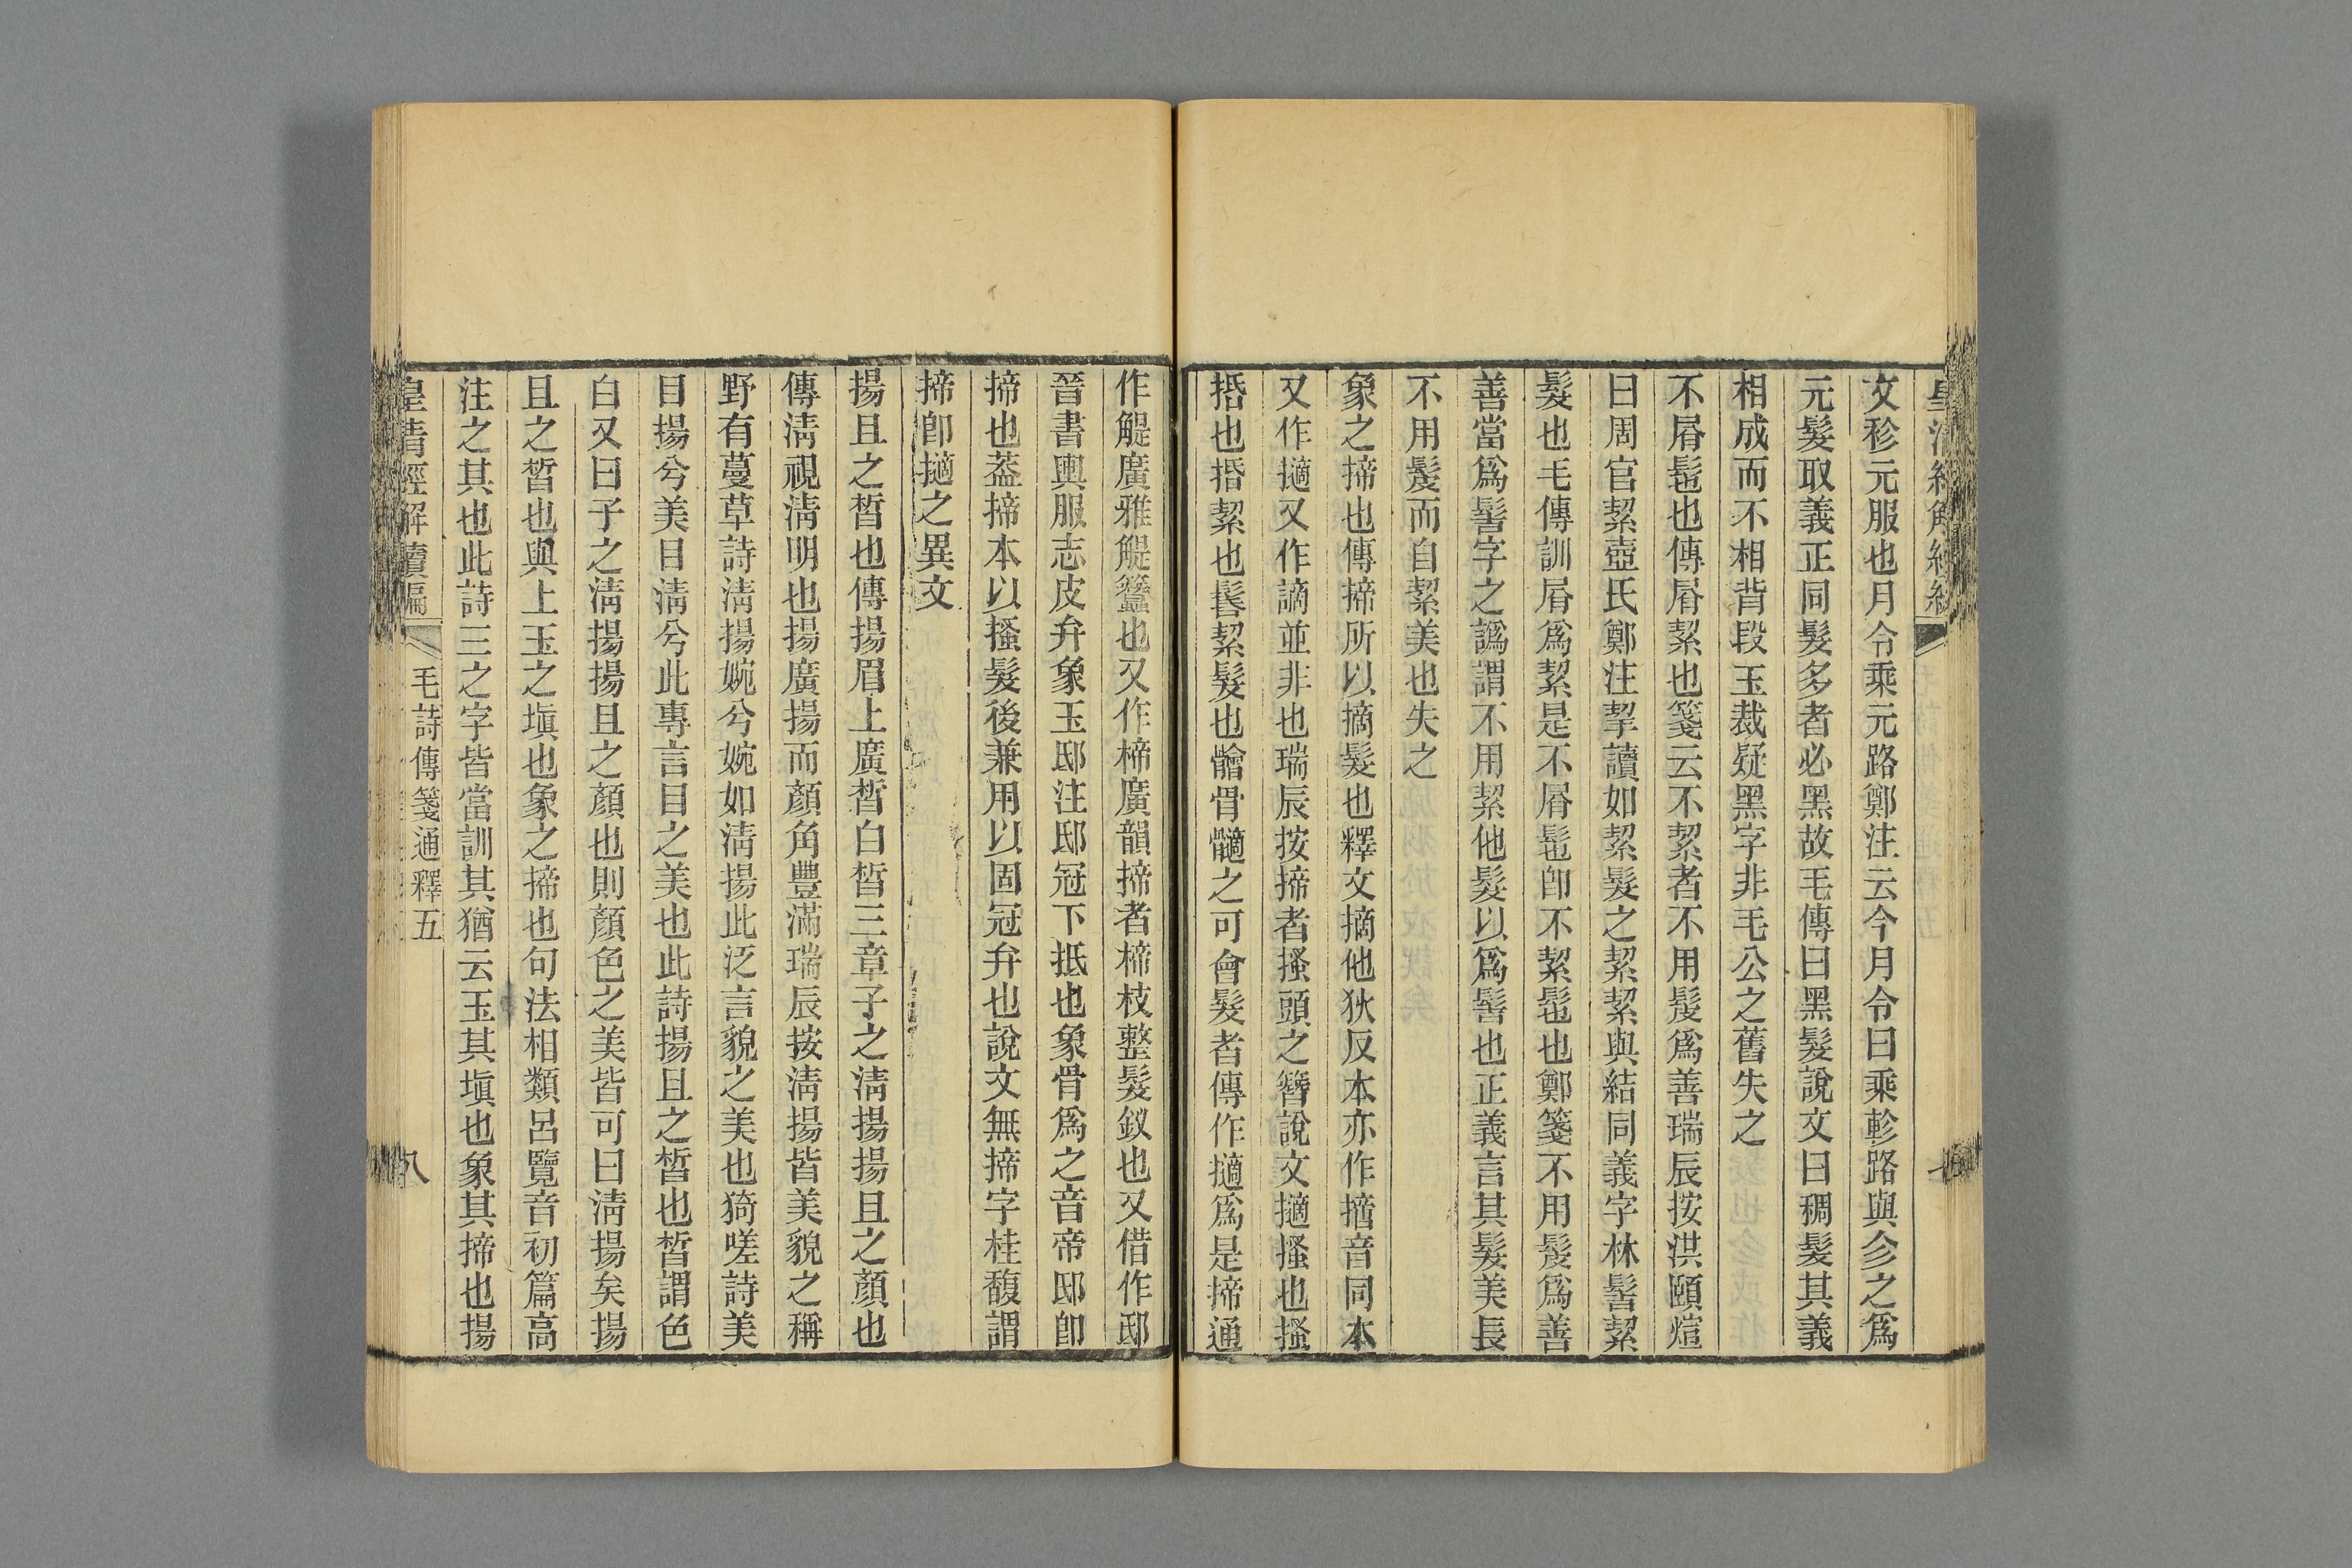 文袗元服也月令乘元路鄭注云今月令曰乘軫路與㐱之爲
元髮取義正同髮多者必黑故毛傳曰黑髮說文曰稠髮其義
相成而不相背段玉裁疑黑字非毛公之舊失之
不屑髢也傳屑絜也箋云不絜者不用髲爲善瑞辰按洪頤煊
曰周官絜壺氏鄭注挈讀如絜髮之絜絜與結同義字林髻絜
髮也毛傳訓屑爲絜是不屑髢卽不絜髢也鄭箋不用髲爲善
善當爲髻字之譌謂不用絜他髮以爲髻也正義言其髮美長
不用髲而自絜美也失之
象之揥也傳揥所以摘髮也釋文摘他狄反本亦作擿音同本
又作擿又作謫並非也瑞辰按揥者搔頭之簪說文擿搔也搔
捪也捪絜也髺絜髮也䯤骨䯜之可會髮者傳作擿爲是揥通
作䚣廣雅䚣簪也又作楴廣韻揥者楴枝整髮釵也又借作邸
晉書輿服志皮弁象玉邸注邸冠下抵也象骨爲之音帝邸卽
揥也葢揥本以搔髮後兼用以固冠弁也說文無揥字桂馥謂
揥卽擿之異文
揚且之皙也傳揚眉上廣皙白皙三章子之淸揚揚且之顏也
傳淸視淸明也揚廣揚而顏角豐滿瑞辰按淸揚皆美貌之稱
野有蔓草詩淸揚婉兮婉如淸揚此泛言貌之美也猗嗟詩美
目揚兮美目淸兮此專言目之美也此詩揚且之皙也皙謂色
白又曰子之淸揚揚且之顏也則顏色之美皆可曰淸揚矣揚
且之皙也與上玉之瑱也象之揥也句法相類呂覽音初篇高
注之其也此詩三之字皆當訓其猶云玉其瑱也象其揥也揚
皇淸經解續編
毛詩傳箋通釋五
八